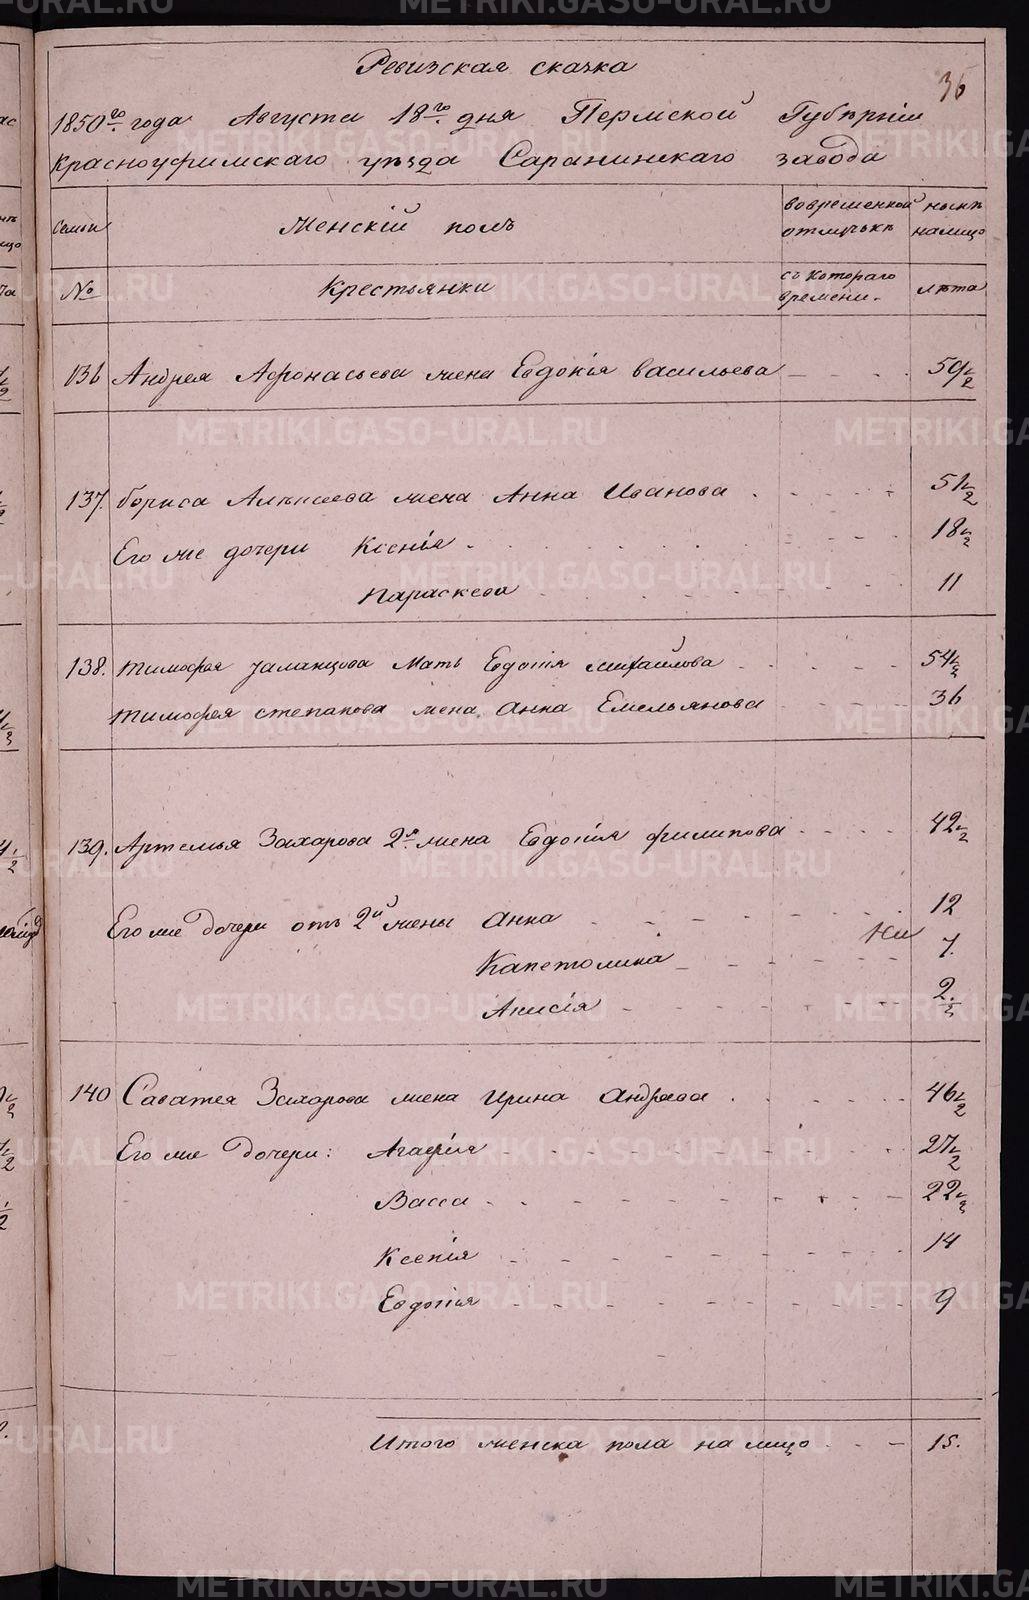 36
Ревизская сказка
1850го года Августа 18го дня Пермской Губѣрніи
Красноуфимскаго уѣзда Саранинскаго завода
Семьи Женскій полъ во временной отлучьке нынѣ на лицо
№ Крестьянки съ котораго времени. лѣта
136 Андрея Афонасьева жена Евдокія Васильева 50 1/2
137. Бориса Алѣксеева жена Анна Иванова 51 1/2
Его же дочери Ксенія 18 1/2
Параскева 11
138. Тимофея Уаланцова Мать Евдокія Михайлова 54 1/2
Тимофея Степанова жена Анна Емельянова 36
139. Артемья Захарова 2я жена Евдокія Филипова 42 1/2
Его же Дочери отъ 2й жены Анна 12
Капетолина 7.
Анисія 2. 1/2
140 Саватея Захарова жена Ирина Андреева 46 1/2
Его же Дочери: Агафія 27 1/2
Васса 22 1/2
Ксенія 14
Евдокія 9
Итого женска пола на лицо 15.
METRIKI.GASO-URAL.RU